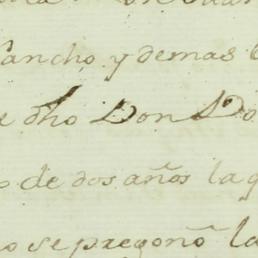 Sancho, y demas
dho Don Do
de dos años la q
se pregonó la